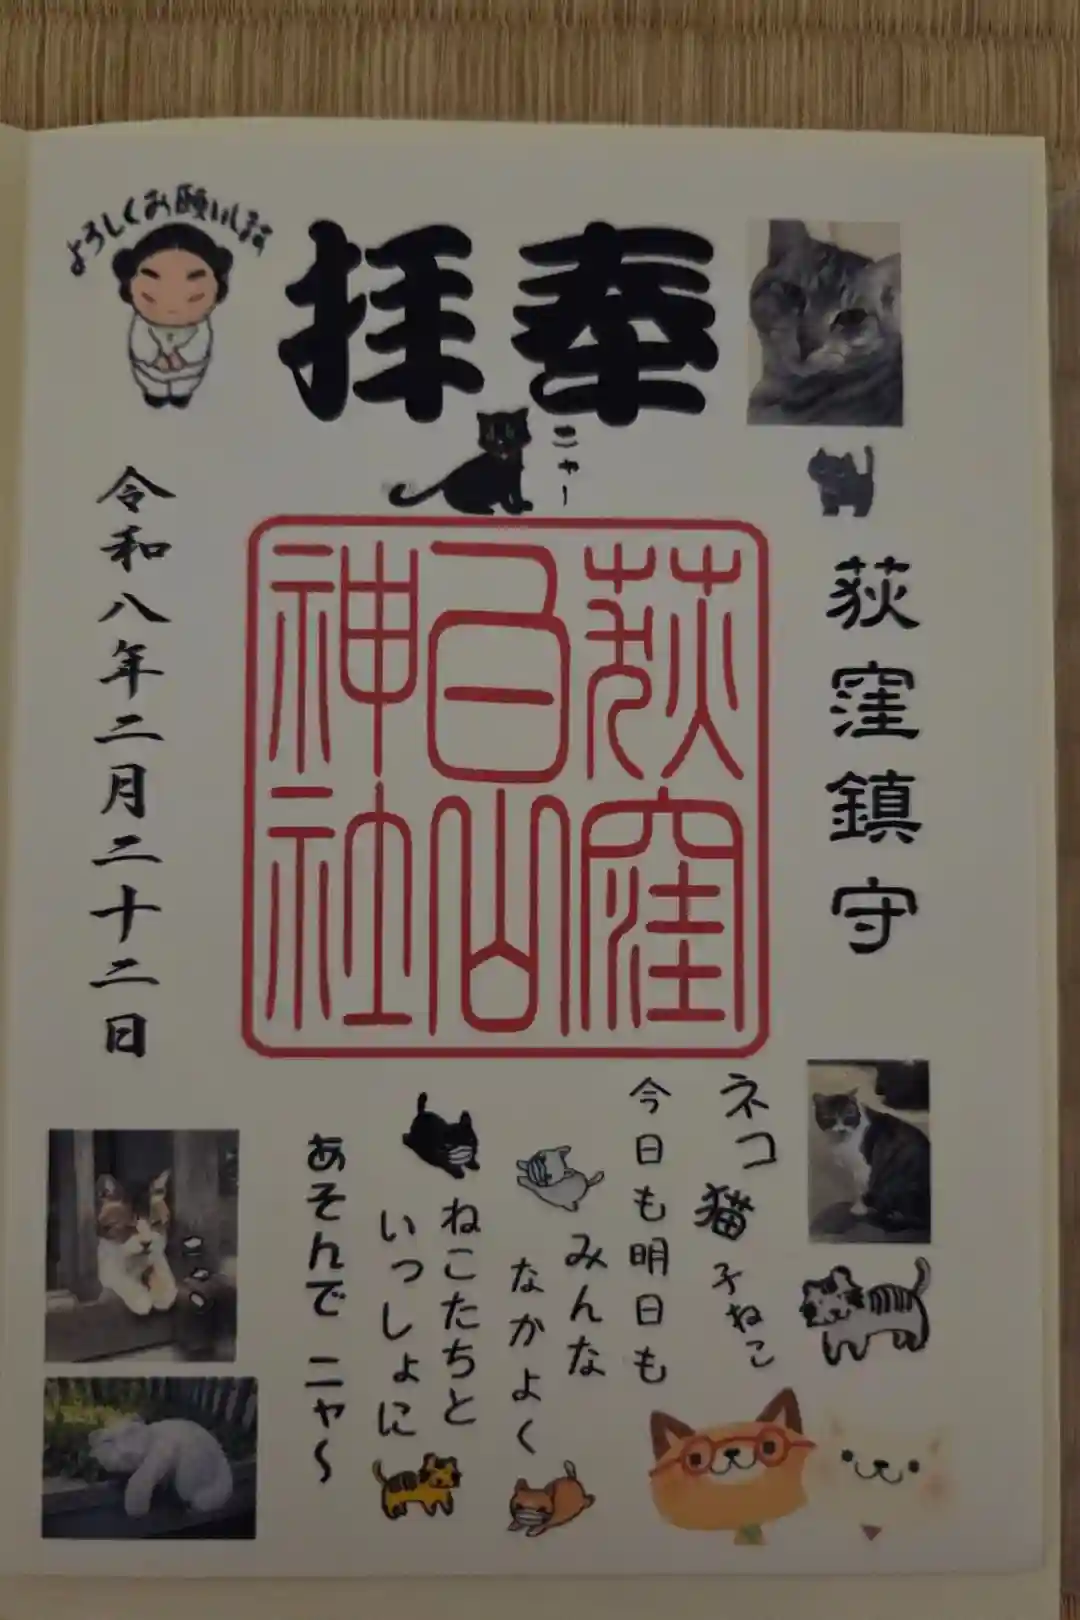 よろしくお願いします
奉拝
ニャー
荻窪鎮守
荻窪
白山
神社
令和八年二月二十二日
ネコ
猫
子ねこ
今日も明日も
みんな
なかよく
ねこたちと
いっしょに
あそんで ニャ〜